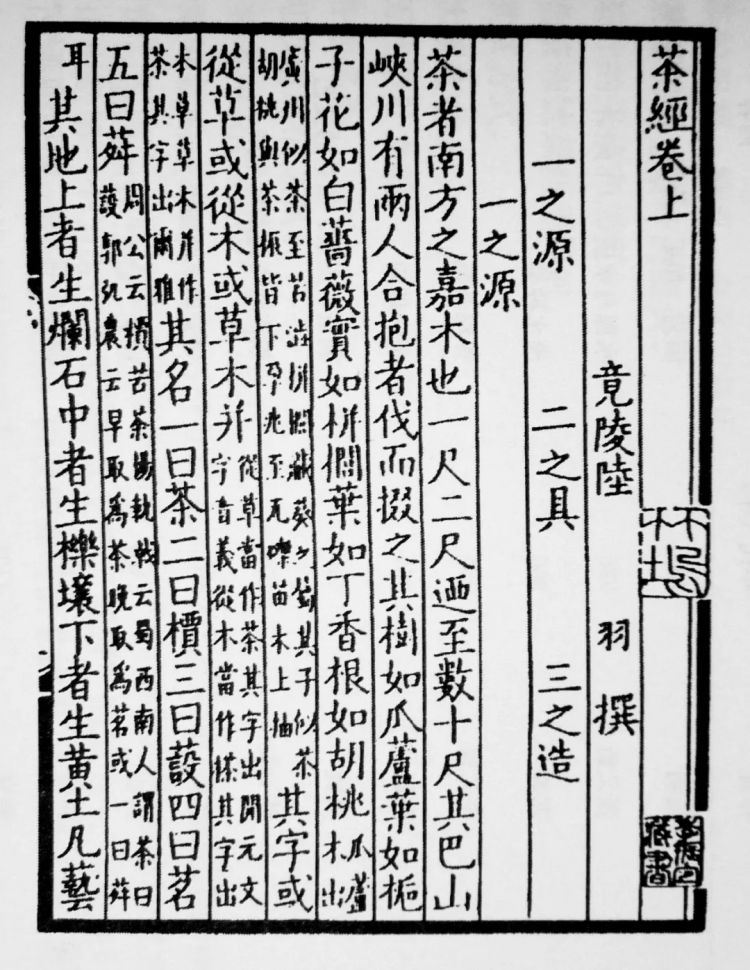 茶經卷上
竟陵陸 羽 撰
一之源 二之具 三之造
一之源
茶者南方之嘉木也一尺二尺迺至數十尺其巴山
峽川有兩人合抱者伐而掇之其樹如瓜蘆葉如梔
子花如白薔薇實如栟櫚葉如丁香根如胡桃瓜蘆木出
廣州似茶至苦澁栟櫚蒲葵之屬其子似茶胡桃與茶根皆下孕兆至瓦礫苗木上抽其字或
從草或從木或草木并從草當作茶其字出開元文字音義從木當作搽其字出
本草草木并作茶其字出爾雅其名一曰茶二曰檟三曰蔎四曰茗
五曰荈周公云檟苦茶楊執戟云蜀西南人謂茶曰蔎郭弘農云早取爲茶晚取爲茗或一曰荈
耳其地上者生爛石中者生櫟壤下者生黄土凡藝